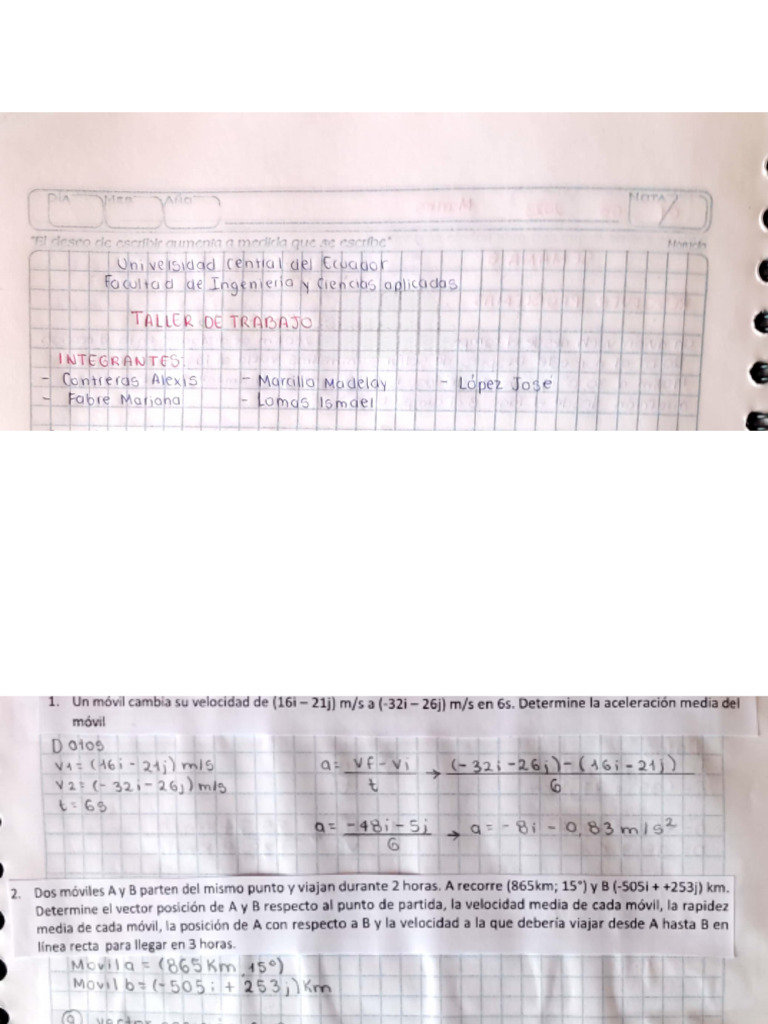 DIA MES AÑO NOTA
"El deseo de escribir aumenta a medida que se escribe"
Universidad Central del Ecuador
Facultad de Ingeniería y Ciencias aplicadas
TALLER DE TRABAJO
INTEGRANTES:
- Contreras Alexis - Marcillo Madelay - López José
- Fabre Mariana - Lomas Ismael
1. Un móvil cambia su velocidad de (16i – 21j) m/s a (-32i – 26j) m/s en 6s. Determine la aceleración media del
móvil
Datos
V1 = (16i - 21j) m/s a = Vf - Vi / t → (-32i - 26j) - (16i - 21j) / 6
V2 = (-32i - 26j) m/s
t = 6s
a = -48i - 5j / 6 → a = -8i - 0,83 m/s²
2. Dos móviles A y B parten del mismo punto y viajan durante 2 horas. A recorre (865km; 15°) y B (-505i + +253j) km.
Determine el vector posición de A y B respecto al punto de partida, la velocidad media de cada móvil, la rapidez
media de cada móvil, la posición de A con respecto a B y la velocidad a la que debería viajar desde A hasta B en
línea recta para llegar en 3 horas.
Movil a = (865 Km, 15°)
Movil b = (-505i + 253j) Km